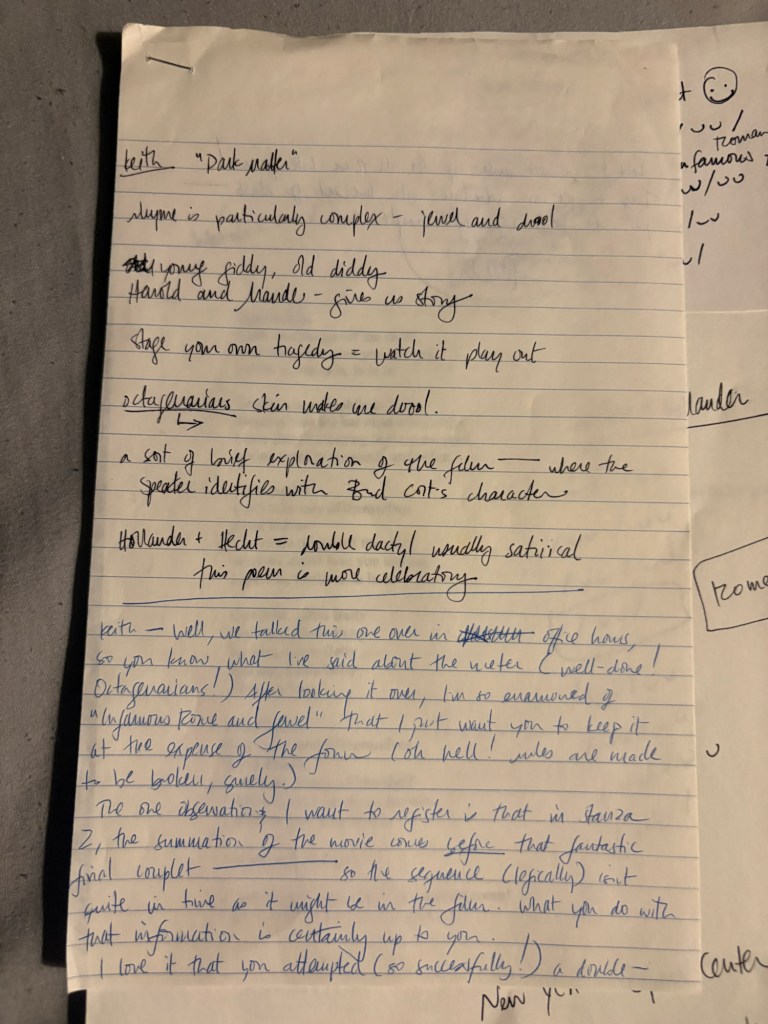 Keith "Dark Matter"
rhyme is particularly complex – jewel and drool
young giddy, old diddy
Harold and Maude – gives us story
Stage your own tragedy = watch it play out
octagenarians skin makes me drool.
a sort of brief exploration of the film — where the
speaker identifies with Bud Cort's character
Hollander + Hecht = double dactyl usually satirical
this poem is more celebratory
Keith — Well, we talked this one over in office hours,
so you know what I've said about the meter (well-done!
Octagenarians!) After looking it over, I'm so enamored of
"Infamous Rome and Jewel" that I just want you to keep it
at the expense of the form (oh well! rules are made
to be broken, surely.)
The one observation I want to register is that in stanza
2, the summation of the movie comes before that fantastic
final couplet — so the sequence (logically) isn't
quite in time as it might be in the film. What you do with
that information is certainly up to you.
I love it that you attempted (so successfully!) a double–
Roman
nfamous
lander
Rome
Center
New